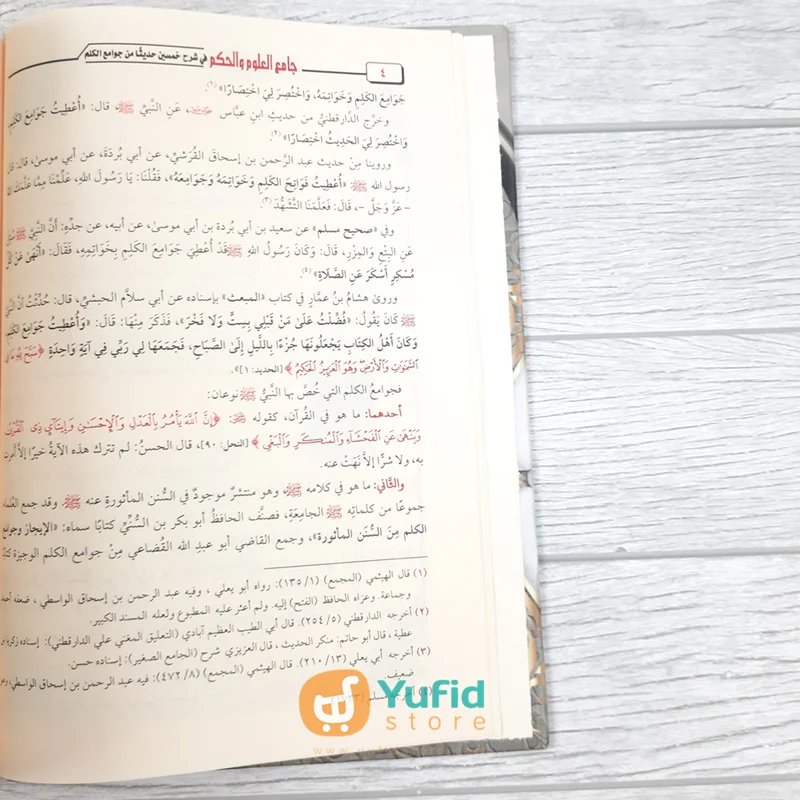 ٤
جامع العلوم والحكم في شرح خمسين حديثًا من جوامع الكلم
جَوَامِعَ الكَلِمِ وَخَوَاتِمَهُ، وَاخْتُصِرَ لِيَ اخْتِصَارًا» (١).
وخرَّج الدَّارقطنيُّ من حديثِ ابنِ عبَّاس، عَنِ النَّبيِّ ﷺ، قال: «أُعْطِيتُ جَوَامِعَ الكَلِمِ،
وَاخْتُصِرَ لِيَ الحَدِيثُ اخْتِصَارًا» (٢).
وروينا مِنْ حديث عبد الرَّحمن بن إسحاق القُرَشيِّ، عن أبي بُردَةَ، عن أبي موسىٰ، قال: قال
رسول الله ﷺ: «أُعْطِيتُ فَوَاتِحَ الكَلِمِ وَخَوَاتِمَهُ وَجَوَامِعَهُ»، فَقُلْنَا: يَا رَسُولَ اللهِ، عَلِّمْنَا مِمَّا عَلَّمَكَ اللهُ
- عَزَّ وَجَلَّ -، قَالَ: فَعَلَّمَنَا التَّشَهُّدَ (٣).
وفي «صحيح مسلم» عن سعيد بن أبي بُردة بن أبي موسىٰ، عن أبيه، عن جدِّهِ: أنَّ النَّبيَّ ﷺ سُئِلَ
عَنِ البِتْعِ وَالمِزْرِ، قَالَ: وَكَانَ رَسُولُ اللهِ ﷺ قَدْ أُعْطِيَ جَوَامِعَ الكَلِمِ بِخَوَاتِمِهِ، فَقَالَ: «أَنْهَىٰ عَنْ كُلِّ
مُسْكِرٍ أَسْكَرَ عَنِ الصَّلَاةِ» (٤).
وروىٰ هشامُ بنُ عمَّارٍ في كتاب «المبعث» بإسناده عن أبي سلَّام الحبشيِّ، قال: حُدِّثْتُ أنَّ النَّبيَّ
ﷺ كَانَ يَقُولُ: «فُضِّلْتُ عَلَىٰ مَنْ قَبْلِي بِسِتٍّ وَلَا فَخْرَ»، فَذَكَرَ مِنْهَا: قَالَ: «وَأُعْطِيتُ جَوَامِعَ الكَلِمِ،
وَكَانَ أَهْلُ الكِتَابِ يَجْعَلُونَهَا جُزْءًا بِاللَّيْلِ إِلَىٰ الصَّبَاحِ، فَجَمَعَهَا لِي رَبِّي فِي آيَةٍ وَاحِدَةٍ ﴿سَبَّحَ لِلَّهِ مَا فِي
السَّمَٰوَٰتِ وَالْأَرْضِ وَهُوَ الْعَزِيزُ الْحَكِيمُ﴾ [الحديد: ١]».
فجوامعُ الكلم التي خُصَّ بها النَّبيُّ ﷺ نوعان:
أحدهما: ما هو في القرآن، كقوله ﷻ: ﴿إِنَّ اللَّهَ يَأْمُرُ بِالْعَدْلِ وَالْإِحْسَٰنِ وَإِيتَآئِ ذِى الْقُرْبَىٰ
وَيَنْهَىٰ عَنِ الْفَحْشَآءِ وَالْمُنكَرِ وَالْبَغْيِ﴾ [النحل: ٩٠]، قال الحسنُ: لم تترك هذه الآيةُ خيرًا إلَّا أَمَرَت
به، ولا شرًّا إلَّا نَهَتْ عنه.
والثَّاني: ما هو في كلامه ﷺ، وهو منتشرٌ موجودٌ في السُّنن المأثورةِ عنه ﷺ. وقد جمع العُلماءُ
جموعًا من كلماتِهِ ﷺ الجامعَةِ، فصنَّف الحافظُ أبو بكر بن السُّنِّيِّ كتابًا سماه: «الإيجاز وجوامع
الكلم مِنَ السُّنَن المأثورة»، وجمع القاضي أبو عبدِ الله القُضاعي مِنْ جوامع الكلم الوجيزة كتابًا
(١) قال الهيثمي (المجمع) (١/ ١٣٥): رواه أبو يعلي، وفيه عبد الرحمن بن إسحاق الواسطي، ضعفه أحمد
وجماعة. وعزاه الحافظ (الفتح) إليه. ولم أعثر عليه المطبوع ولعله المسند الكبير.
(٢) أخرجه الدارقطني (٥/ ٢٥٤). قال أبي الطيب العظيم آبادي (التعليق المغني علي الدارقطني): إسناده زكريا بن
عطية، قال أبو حاتم: منكر الحديث، قال العزيزي شرح (الجامع الصغير): إسناده حسن.
(٣) أخرجه أبي يعلي (١٣/ ٢١٠). قال الهيثمي (المجمع) (٨/ ٤٧٢): فيه عبد الرحمن بن إسحاق الواسطي، وهو
ضعيف.
(٤) أخرجه مسلم
Yufid
store